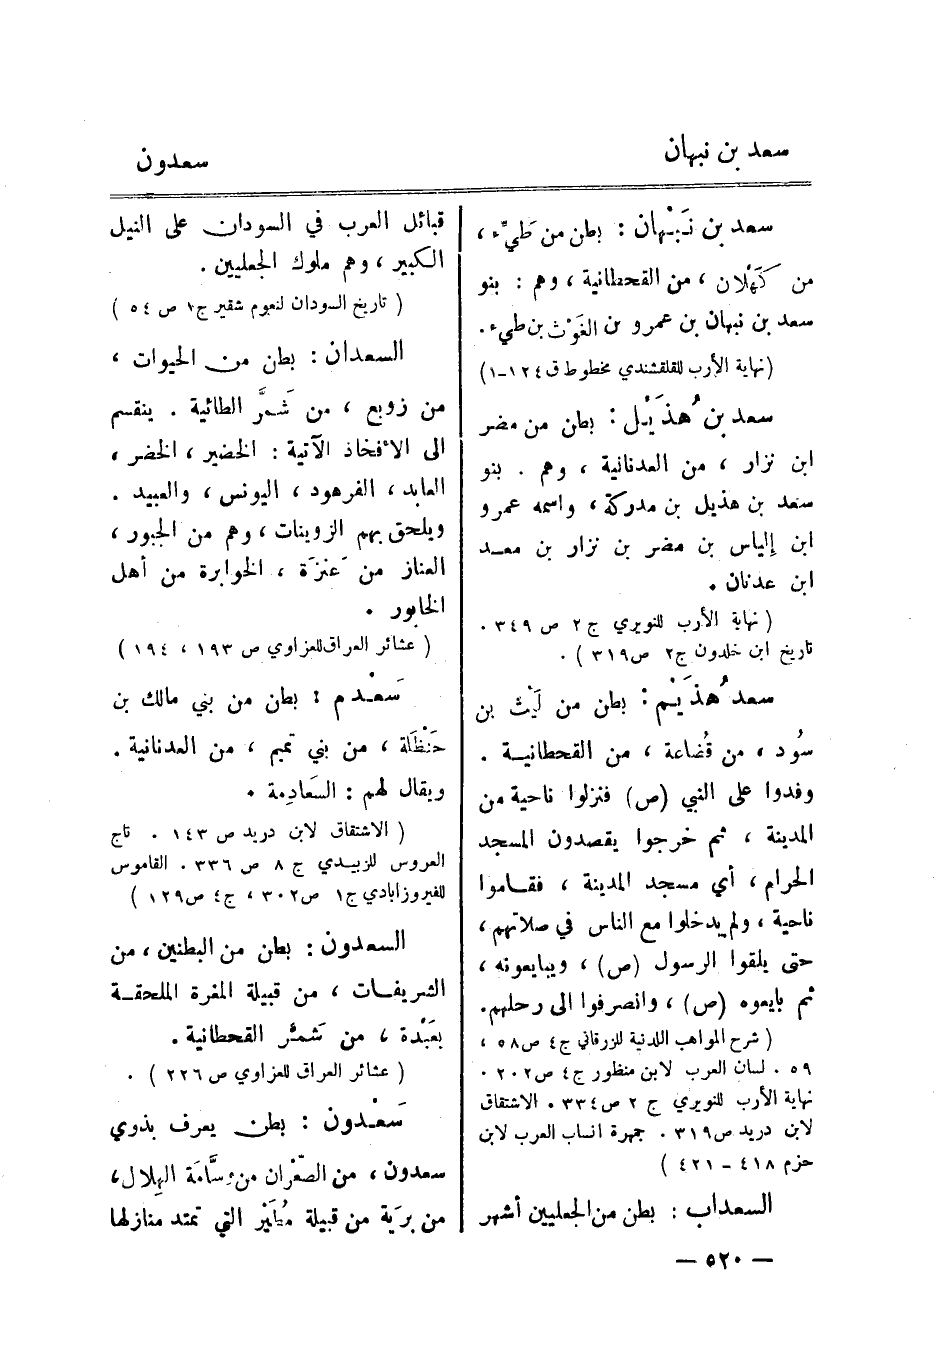 سعد بن نبهان
سعدون
سعد بن نَبْهان : بطن من طَيِّء ،
من كَهْلان ، من القحطانية ، وهم : بنو
سعد بن نبهان بن عمرو بن الغَوْث بن طيء .
(نهاية الأرب للقلقشندي مخطوط ق ١٢٤-١)
سعد بن هُذَيْل : بطن من مضر
ابن نزار ، من العدنانية ، وهم . بنو
سعد بن هذيل بن مدركة ، واسمه عمرو
ابن إلياس بن مضر بن نزار بن معد
ابن عدنان .
( نهاية الأرب للنويري ج ٢ ص ٣٤٩ .
تاريخ ابن خلدون ج٢ ص٣١٩ ) .
سعد هُذَيْم : بطن من لَيْث بن
سُود ، من قُضاعة ، من القحطانية .
وفدوا على النبي (ص) فنزلوا ناحية من
المدينة ، ثم خرجوا يقصدون المسجد
الحرام ، أي مسجد المدينة ، فقاموا
ناحية ، ولم يدخلوا مع الناس في صلاتهم ،
حتى يلقوا الرسول (ص) ، ويبايعونه ،
ثم بايعوه (ص) ، وانصرفوا الى رحلهم.
( شرح المواهب اللدنية للزرقاني ج٤ ص٥٨ ،
٥٩ . لسان العرب لابن منظور ج٤ ص٢٠٢ .
نهاية الأرب للنويري ج ٢ ص٣٣٤ . الاشتقاق
لابن دريد ص٣١٩ . جمهرة انساب العرب لابن
حزم ٤١٨ - ٤٢١ )
السعداب : بطن من الجعليين أشهر
قبائل العرب في السودان على النيل
الكبير ، وهم ملوك الجعليين .
( تاريخ السودان لنعوم شقير ج١ ص ٥٤ )
السعدان : بطن من الحيوات ،
من زوبع ، من شَمَّر الطائية . ينقسم
الى الأفخاذ الآتية : الخضير ، الخضر ،
العابد ، الفرهود ، اليونس ، والعبيد .
ويلحق بهم الزوينات ، وهم من الجبور ،
العناز من عَنزَة ، الخوابرة من أهل
الخابور .
( عشائر العراق للعزاوي ص ١٩٣ ، ١٩٤ )
سَعْدم : بطن من بني مالك بن
حَنْظَلة ، من بني تميم ، من العدنانية .
ويقال لهم : السَعادِمة .
( الاشتقاق لابن دريد ص ١٤٣ . تاج
العروس للزبيدي ج ٨ ص ٣٣٦ . القاموس
للفيروزابادي ج١ ص٣٠٢ ، ج٤ ص١٢٩ )
السعدون : بطن من البطنين ، من
الشريفات ، من قبيلة المغرة الملحقة
بعَبْدة ، من شَمَّر القحطانية .
( عشائر العراق للعزاوي ص ٢٢٦ ) .
سَعْدون : بطن يعرف بذوي
سعدون ، من الصَّعْران من وسَّامَة الهلال ،
من برَية من قبيلة مُطَيْر التي تمتد منازلها
— ٥٢٠ —